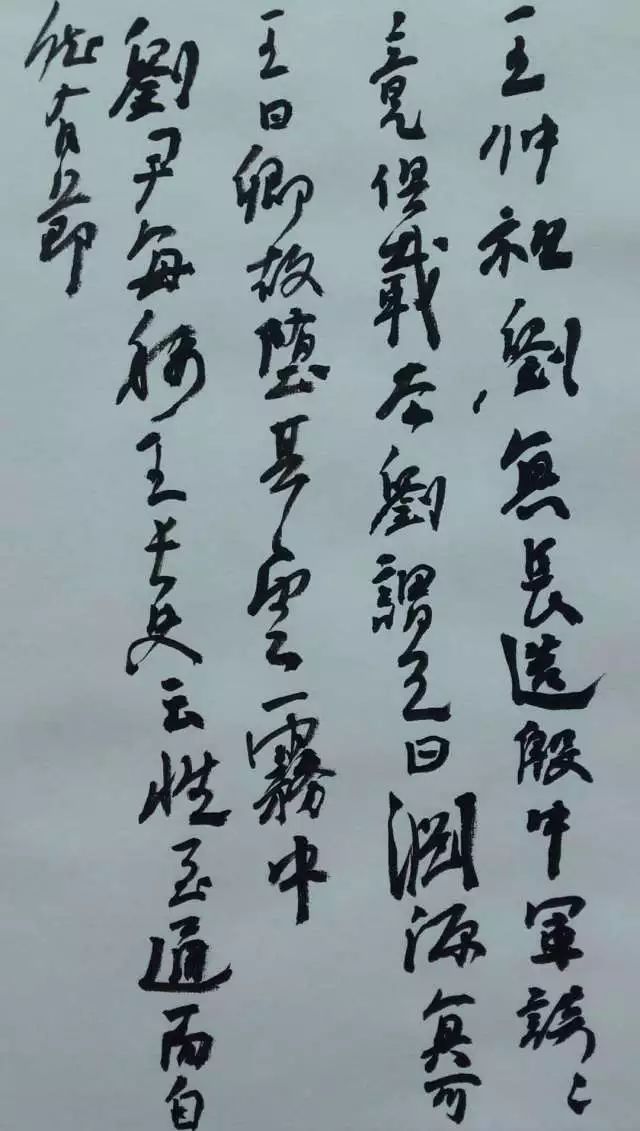 王仲祖劉真長造殷中軍談〻
竟俱載去劉謂王曰淵源真可
王曰卿故墮其雲霧中
劉尹每稱王長史云性至通而自
然有節